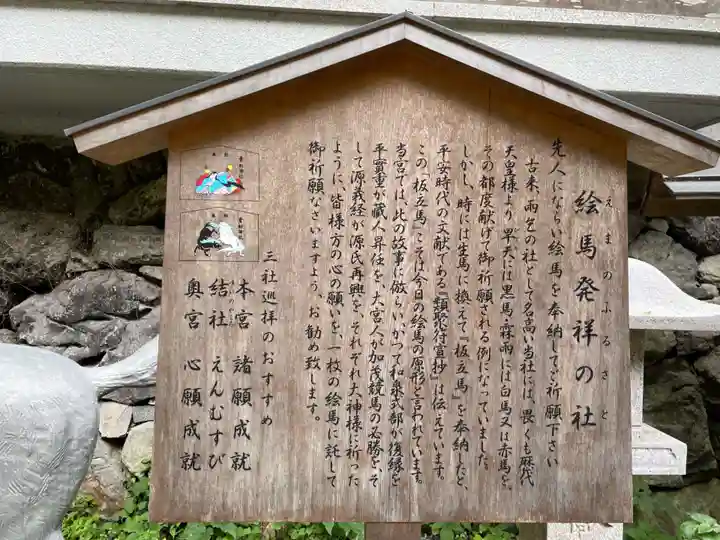 絵馬発祥の社
えまのふるさと
先人にならい絵馬を奉納してご祈願下さい
古来、雨乞の社として名高い当社には、畏くも歴代
天皇様より、旱天には黒馬・霖雨には白馬又は赤馬を、
その都度献げて御祈願される例になっていました。
しかし、時には生馬に換えて『板立馬』を奉納したと、
平安時代の文献である『類聚符宣抄』は伝えています。
この『板立馬』こそは今日の絵馬の原形と言われています。
当宮では、此の故事に倣らい、かつて和泉式部が復縁を
平實重が蔵人昇任を、大宮人が加茂競馬の必勝を、そ
して源義経が源氏再興を、それぞれ大神様に祈った
ように、皆様方の心の願いを、一枚の絵馬に託して
御祈願なさいますよう、お勧め致します。
三社巡拝のおすすめ
本宮 諸願成就
結社 えんむすび
奥宮 心願成就